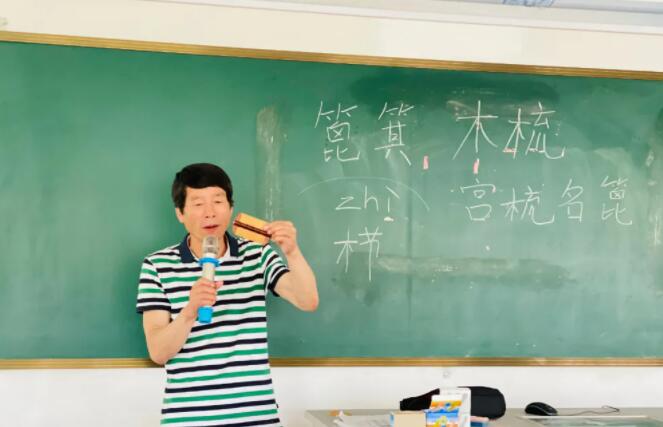 篦箕 木梳
zhì 宫梳名篦
栉